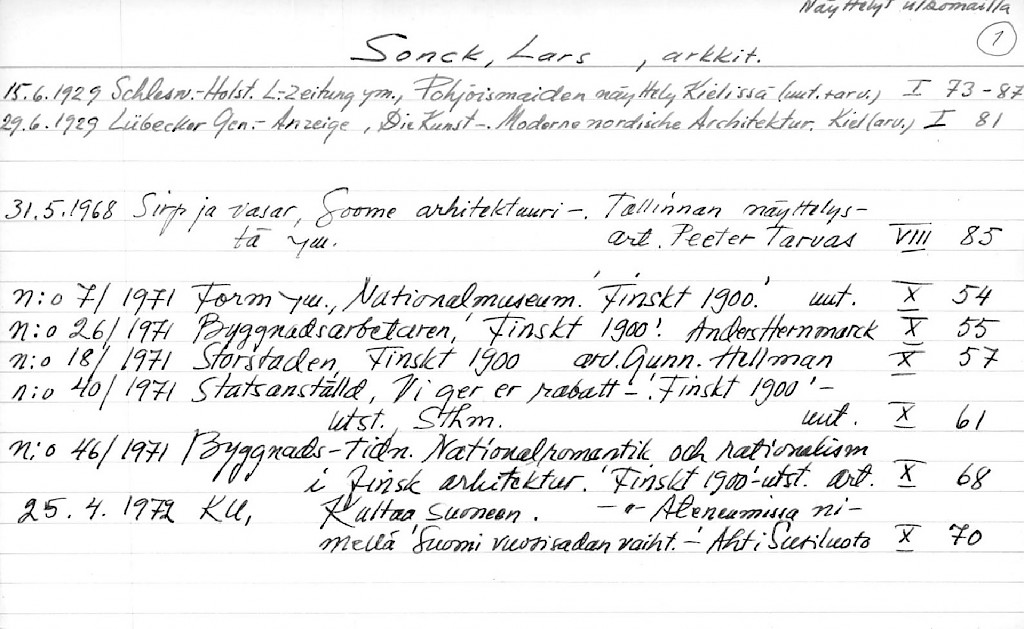 Näyttelyt ulkomailla
1
Sonck, Lars , arkkit.
15.6.1929 Schlesw.-Holst. L.-Zeitung ym., Pohjoismaiden näyttely Kielissä (uut.+arv.) I 73-87
29.6.1929 Lübecker Gen.-Anzeige, Die Kunst-. Moderne nordische Architektur. Kiel (arv.) I 81
31.5.1968 Sirp ja vasar, Soome arhitektuuri-. Tallinnan näyttelys-
tä ym. art. Peeter Tarvas VIII 85
n:o 7/1971 Form ym., Nationalmuseum. 'Finskt 1900.' uut. X 54
n:o 26/1971 Byggnadsarbetaren, 'Finskt 1900'. Anders Hernmarck X 55
n:o 18/1971 Storstaden, Finskt 1900 arv. Gunn. Hellman X 57
n:o 40/1971 Statsanställd, Vi ger er rabatt-'. Finskt 1900'-
utst. Sthm. uut. X 61
n:o 46/1971 Byggnads-tidn. Nationalromantik och rationalism
i finsk arkitektur. 'Finskt 1900'-utst. art. X 68
25.4.1972 KU, Kultaa Suomeen. -"- Ateneumissa ni-
mellä 'Suomi vuosisadan vaiht.-' Ahti Susiluoto X 70